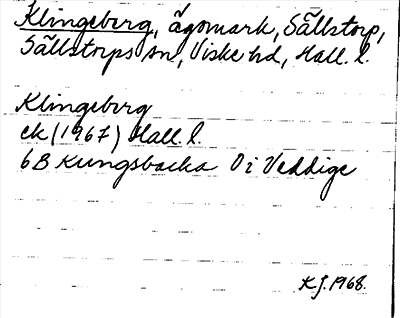 Klingeberg, ägomark, Sällstorp,
Sällstorps sn, Viske hd, Hall. l.
Klingeberg
ek (1967) Hall. l.
6B Kungsbacka Öi Veddige
K.J. 1968.